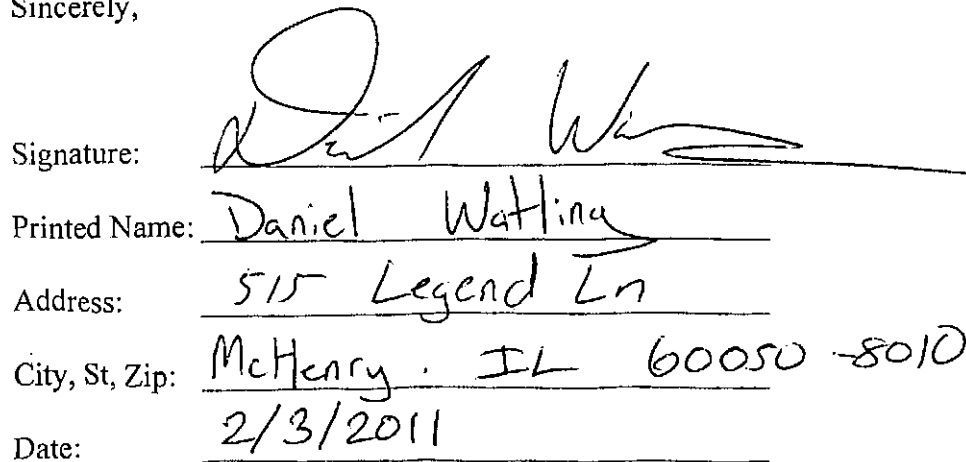 Sincerely,
Signature:
Printed Name: Daniel Watling
Address: 515 Legend Ln
City, St, Zip: McHenry. IL 60050-8010
Date: 2/3/2011